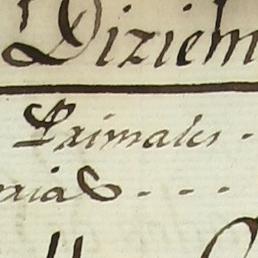 Diziem
Primales -
rias - - -